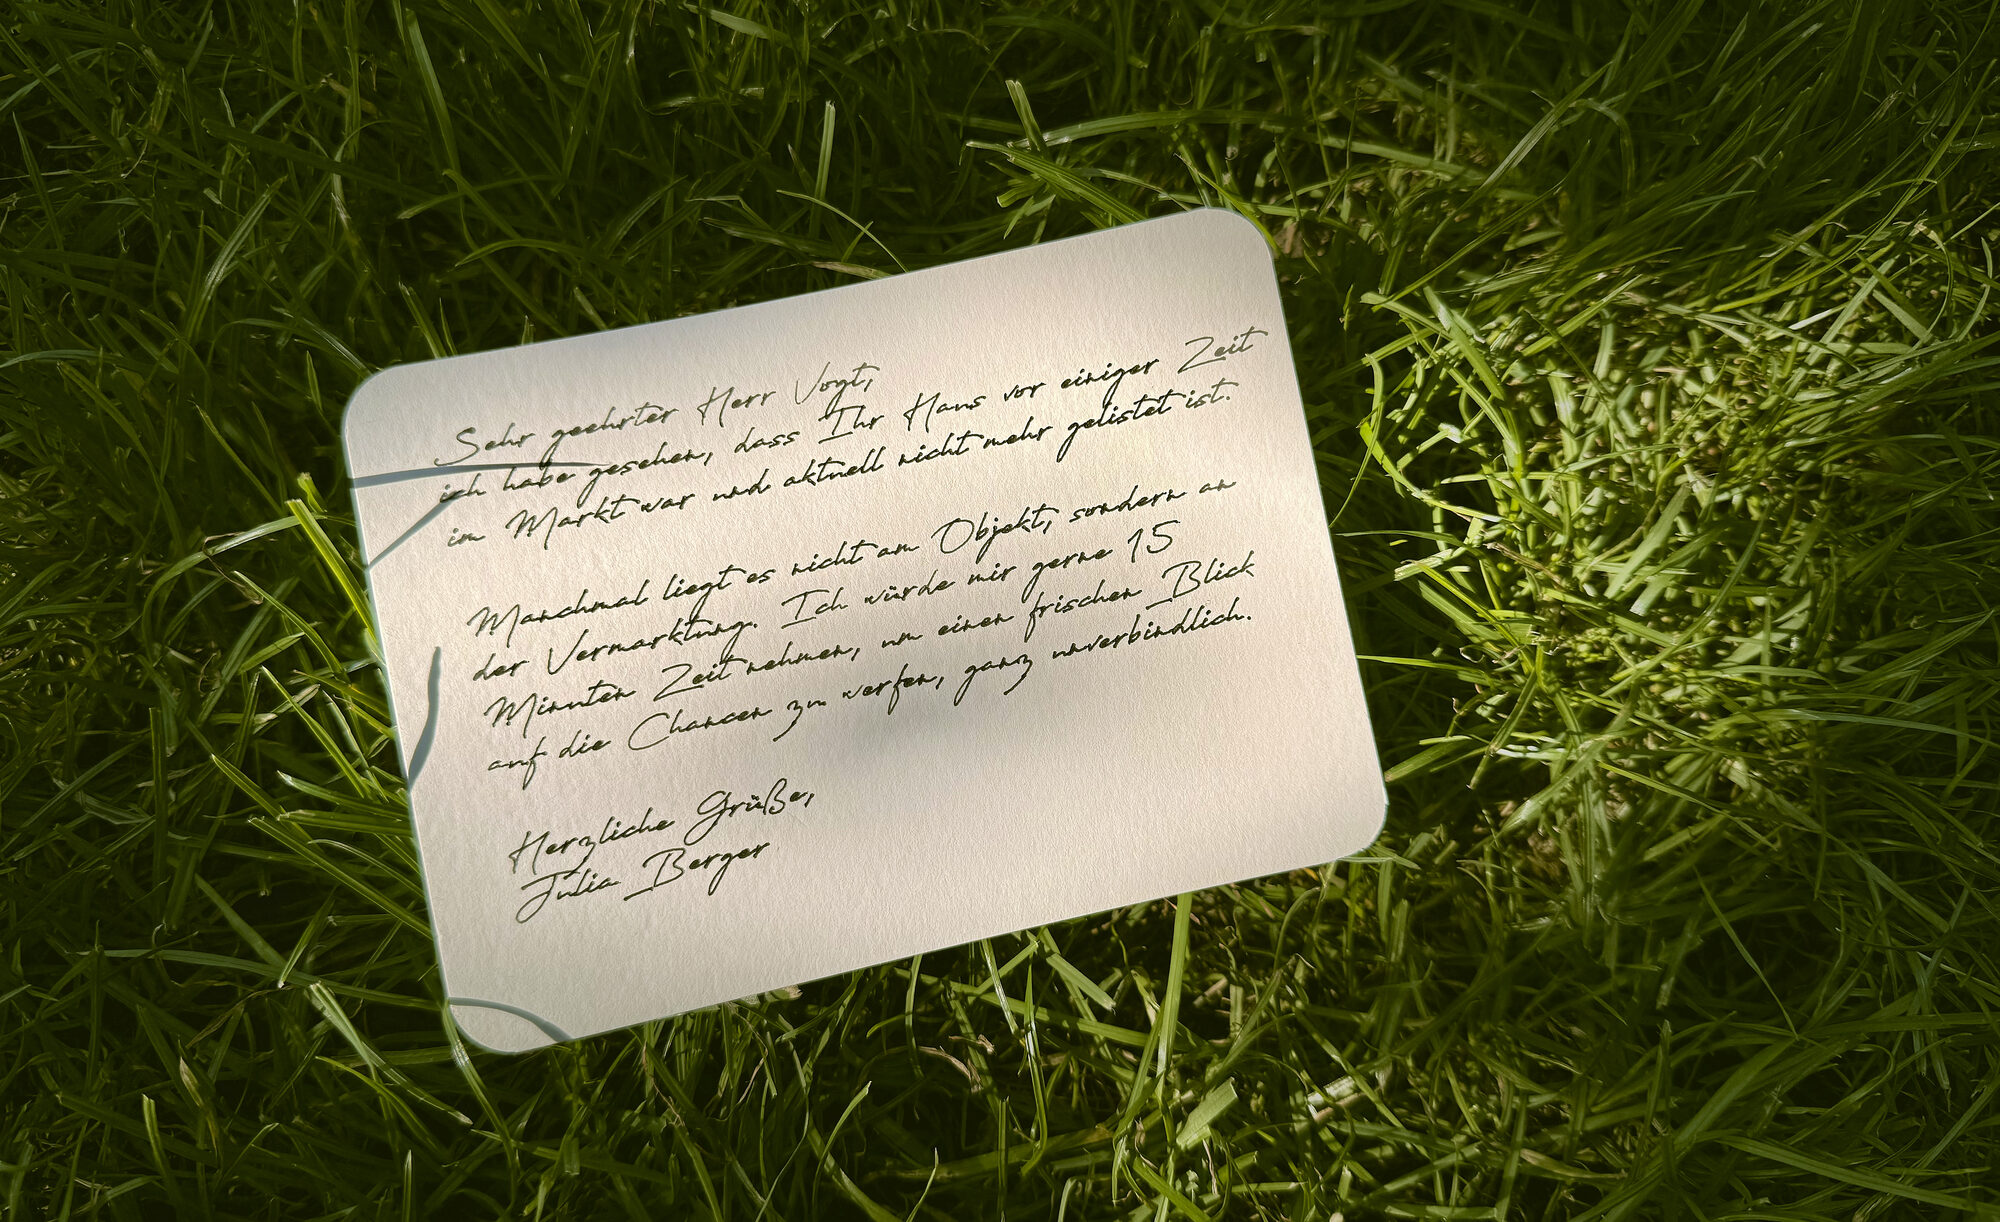 Sehr geehrter Herr Vogt,
ich habe gesehen, dass Ihr Haus vor einiger Zeit
im Markt war und aktuell nicht mehr gelistet ist.
Manchmal liegt es nicht am Objekt, sondern an
der Vermarktung. Ich würde mir gerne 15
Minuten Zeit nehmen, um einen frischen Blick
auf die Chancen zu werfen, ganz unverbindlich.
Herzliche Grüße,
Julia Berger